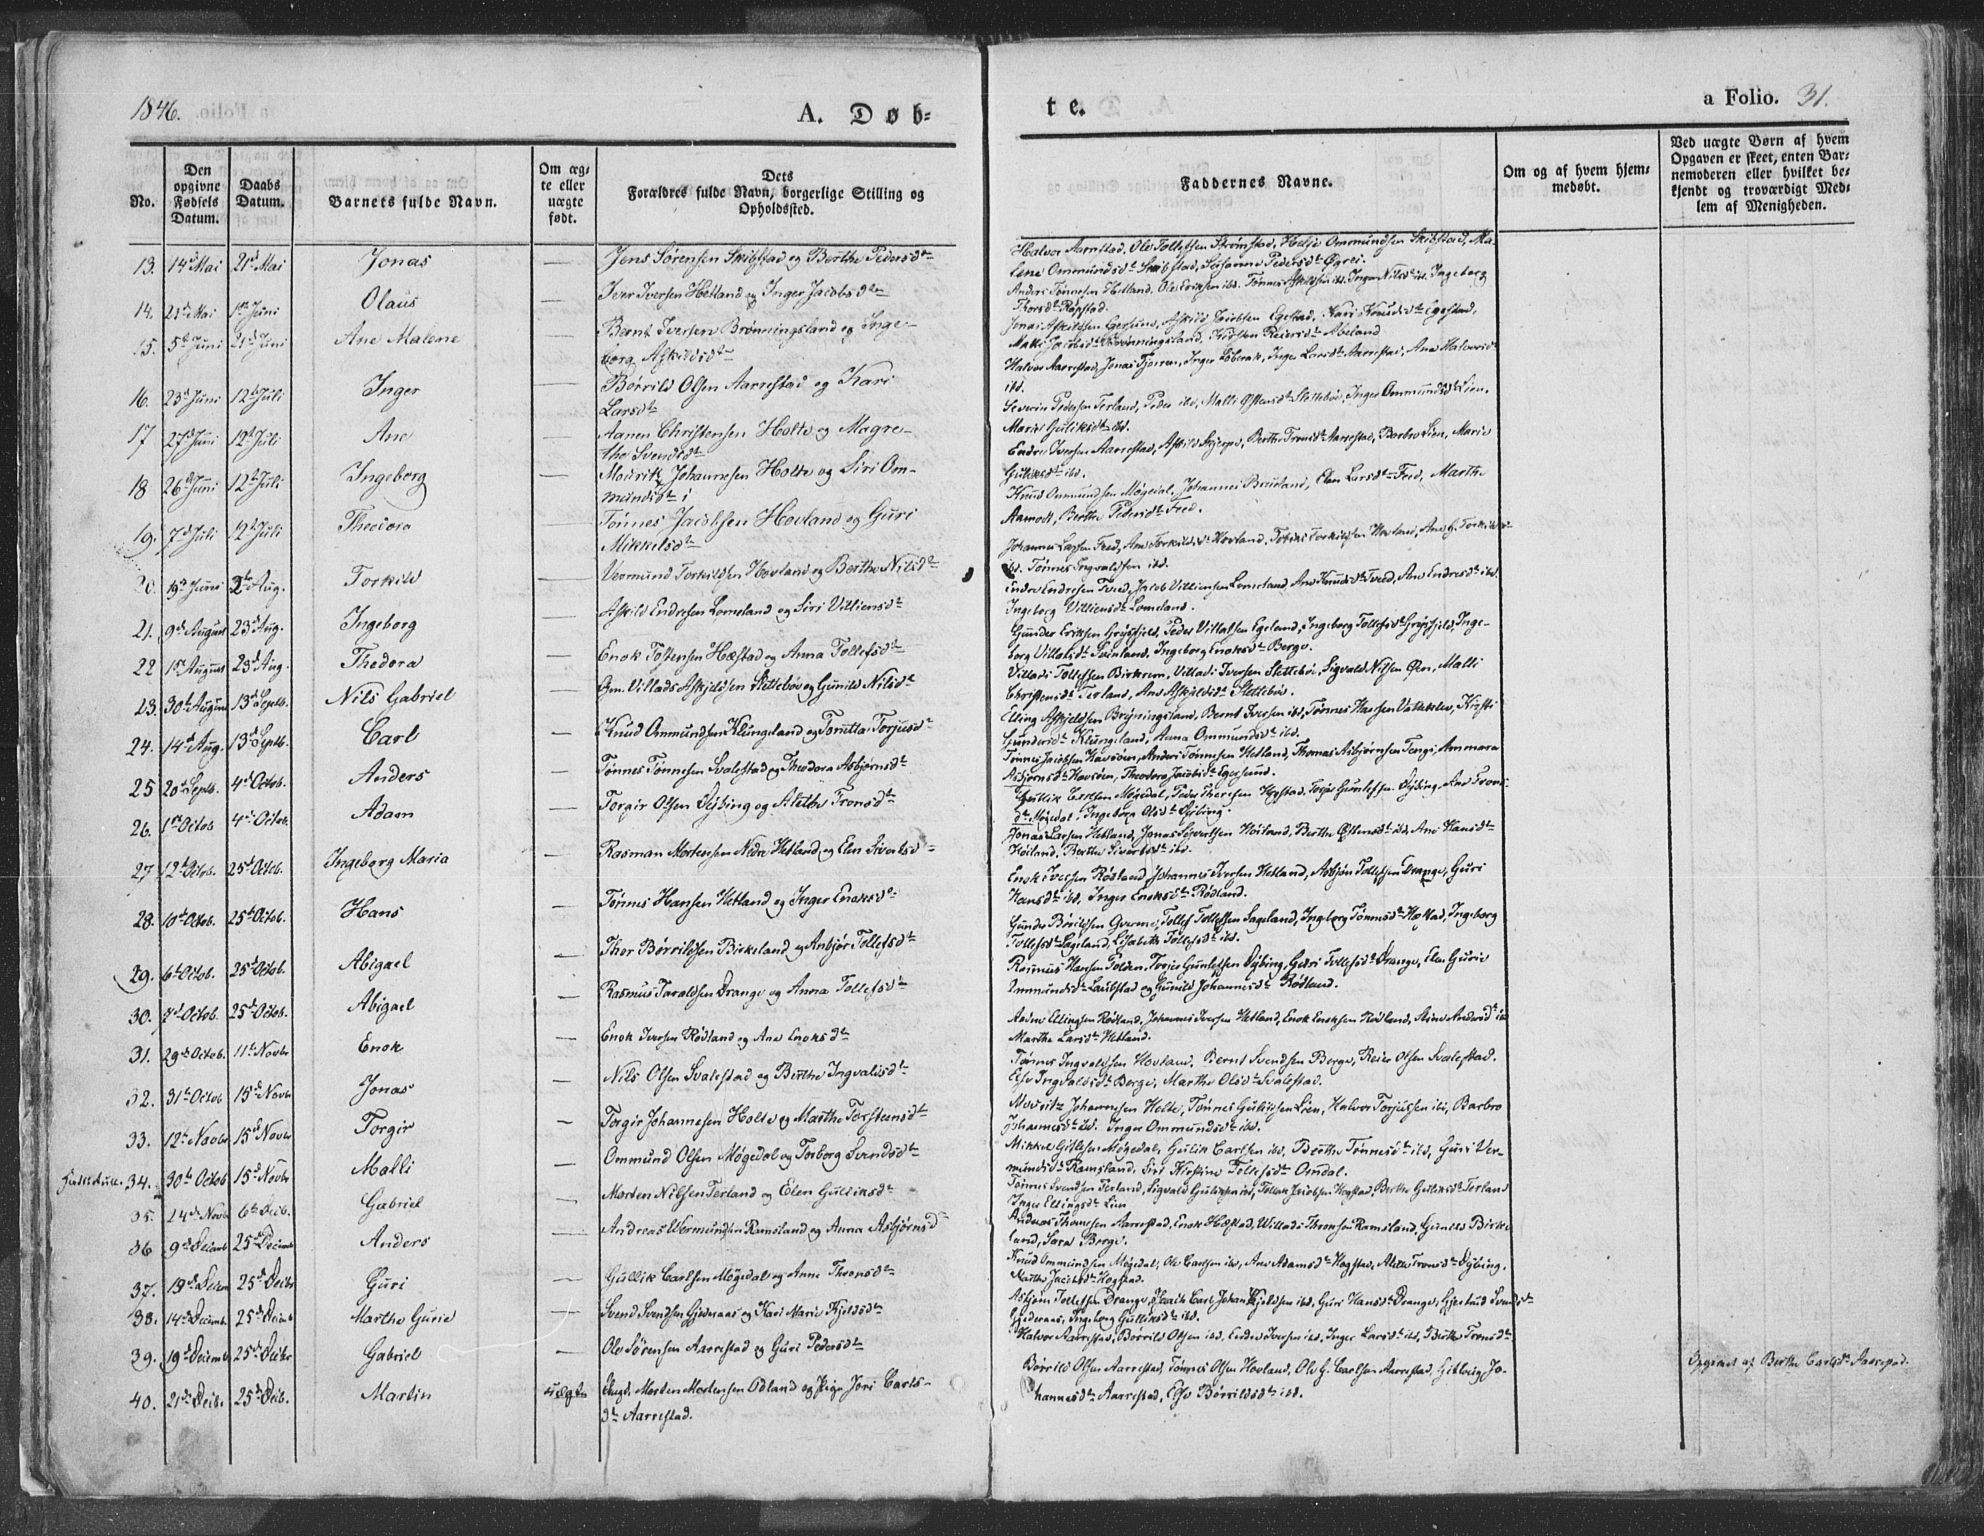 1846.
A. Døb=
te.
a Folio. 31.
No.
Den opgivne Fødsels Datum.
Daabs Datum.
Barnets fulde Navn.
Om ægte eller uægte født.
Dets Forældres fulde Navn, borgerlige Stilling og Opholdssted.
Faddernes Navne.
Om og af hvem hjemmedøbt.
Ved uægte Børn af hvem Opgaven er skeet, enten Barnemoderen eller hvilket bekjendt og troværdigt Medlem af Menigheden.
13. 14d Mai 21d Mai Jonas — Jens Sørensen Skibstad og Berthe Pedersdtr
Halvor Aarrestad, Ole Tollefsen Strømstad, Helje Ommundsen Skibstad, Malene Ommundsdtr Skibstad, Susanne Pedersdtr Øgrei.
14. 21d Mai 1st Juni Olaus — Iver Iversen Hetland og Inger Jacobsdtr
Anders Tønnesen Hetland, Ole Eriksen ibd. Tønnes Askildsen ibd. Inger Nilsdtr ibd. Ingeborg Thorsdtr Røpstad.
15. 5th Juni 21d Juni Ane Malene — Bernt Iversen Brønningsland og Ingeborg Askildsdtr
Jonas Askildsen Egersund, Askild Jacobsen Egestad, Kari Knudsdtr Egestad,
16. 23d Juni 12th Juli Inger — Børrild Olsen Aarrestad og Kari Larsdtr
Halvor Aarrestad, Jonas Tjorn, Inger Løbrak, Inger Larsdtr Aarrestad, Ane Halvorsdtr ibd.
17 27d Juni 12th Juli Ane — Aanen Christensen Holte og Magrethe Svendsdtr
Severin Pedersen Terland, Peder ibd, Malli Østensdtr Slettebøe, Inger Ommundsdtr Lien, Marie Guliksdtr ibd.
18 26d Juni 12th Juli Ingeborg — Mouritz Johannesen Holte og Siri Ommundsdtr
Endre Iversen Aarrestad, Askild Skjerpe, Berthe Tronsdtr Aarrestad, Barbro Lien, Marie Guliksdtr ibd.
19. 7d Juli 12th Juli Theodora — Tønnes Jacobsen Hovland og Guri Mikkelsdtr
Knud Ommundsen Møgedal, Johannes Breiland, Elen Larsdtr Fred, Marthe Aamodt, Berthe Pedersdtr Fred.
20. 19th Juni 2den Aug. Torkild — Vermund Torkildsen Hovland og Berthe Nilsdtr
Johannes Larsen Fred, Ane Torkildsdtr Hovland, Tobias Torkildsen Hovland, Ane G. Torkildsdtr ibd. Tønnes Ingvaldsen ibd.
21. 9d August 23d Aug. Ingeborg — Askild Endresen Lomeland og Siri Villiensdtr
Endre Endresen Fred, Jacob Villiensen Lomeland, Ane Knudsdtr Fred, Ane Endresdtr ibd. Ingeborg Villiensdtr Lomeland.
22 1st August 23d Aug. Thedora — Enok Tostensen Hæstad og Anna Tollefsdtr
Gunder Eriksen Grøsfjeld, Peder Villatsen Egeland, Ingeborg Tollefsdtr Grøsfjeld, Ingeborg Villatsdtr Svenland, Ingeborg Enoksdtr Berge.
23. 30th August 13d Septb. Nils Gabriel — Om. Villads Askjeldsen Slettebøe og Gunild Nilsdtr
Villads Tollefsen Birkrem, Villads Iversen Slettebøe, Sigvald Nilsen Øen, Malli Christensdtr Terland, Ane Askjeldsdtr Slettebøe.
24. 14d Aug. 13d Septb. Carl — Knud Ommundsen Klungeland og Torutta Torjusdtr
Elling Askjeldsen Brøningsland, Bernt Iversen ibd, Tønnes Hansen Vatteløe, Kirsti Gundersdtr Klungeland, Anna Ommundsdtr ibd.
25 20d Septb. 4d Octob. Anders — Tønnes Tønnesen Svalestad og Theodora Asbjørnsdtr
Tønnes Jacobsen Havsøen, Anders Tønnesen Hetland, Thomas Asbjørnsen Tengs, Anmara Asbjørnsdtr Havsøen, Theodora Jacobsdtr Egersund.
26. 1st Octob 4d Octob. Adam — Torgir Olsen Dybing og Alethe Tronsdtr
Gullik Carlsen Møgedal, Peder Theresen Hogstad, Torjer Gunlefsen Dybing, Ane Tronsdtr Møgedal, Ingeborg Olsdtr Dybing.
27 12th Octob. 25d Octob. Ingeborg Maria — Rasman Mortensen Nedre Hetland og Elen Sivertsdtr
Jonas Larsen Hetland, Jonas Sivertsen Høiland, Berthe Østensdtr ibd, Ane Hansdtr Høiland, Berthe Sivertsdtr ibd.
28. 10th Octob. 25d Octob. Hans — Tønnes Hansen Hetland og Inger Enoksdtr
Enok Iversen Rødland, Johannes Iversen Hetland, Asbjør Tollefsen Drange, Guri Hansdtr ibd, Inger Enoksdtr Rødland.
29. 6th Octob. 25d Octob. Abigael — Thor Børrildsen Birkeland og Anbjør Tollefsdtr
Gunder Børildsen Qverme, Tollef Tollefsen Sageland, Ingeborg Tønnesdtr Hæstad, Ingeborg Tollefsdtr Sageland, Elisabeth Tollefsdtr ibd.
30. 7d Octob. 25d Octob. Abigael — Rasmus Taraldsen Drange og Anna Tollefsdtr
Rasmus Hansen Tolden, Torjer Gunlefsen Dybing, Guri Tollefsdtr Drange, Elen Gurie Ommundsdtr Laubstad og Gunild Johannesdtr Rødland.
31. 29d Octob. 11th Novbr Enok — Enok Iversen Rødland og Ane Enoksdtr
Andres Ellingsen Rødland, Johannes Iversen Hetland, Enok Enoksen Rødland, Aine Andersdtr ibd Marthe Larsdtr Hetland.
32. 31st Octob 15d Novbr Jonas — Nils Olsen Svalestad og Berthe Ingvaldsdtr
Tønnes Ingvaldsen Hovland, Bernt Svendsen Berge, Reier Olsen Svalestad. Else Ingvaldsdtr Berge, Marthe Olsdtr Svalestad.
33. 12th Novbr 15d Novbr Torgir — Torgir Johannesen Holte og Marthe Torstensdtr
Movritz Johannesen Holte, Tønnes Guliksen Lien, Halvor Torjussen ibd, Barbro Johannesdtr ibd. Inger Ommundsdtr ibd.
34. 30th Octob 15d Novbr Malli — Ommund Olsen Møgedal og Torborg Svendsdtr
Mikkel Gitlesen Møgedal, Gulik Carlsen ibd, Berthe Tønnesdtr ibd, Guri Vermundsdtr Ramsland, Siri Kirstine Tollefsdtr Omdal.
35. 14d Novbr 6th Decb. Gabriel — Morten Nilsen Terland og Elen Gulliksdtr
Tønnes Svendsen Terland, Sigvald Guliksen ibd, Tollak Jacobsen Hogstad, Berthe Guliksdtr Terland Inger Ellingsdtr Lien
36 9d Decemb 25d Decemb Anders — Andreas Wermundsen Ramsland og Anna Asbjørnsd
Andreas Thomesen Aarrestad, Enok Hæstad, Willads Thronsen Ramsland, Gunild Birkeland, Sara Berge.
37. 19d Decem 25d Decbr Guri — Gullik Carlsen Møgedal og Anne Thronsdtr
Knud Ommundsen Møgedal, Ole Carlsen ibd, Ane Adamsdtr Hogstad, Alethe Tronsdtr Dybing. Marthe Jacobsdtr Hogstad.
38. 14d Decemb. 25d Decemb Marthe Gurie — Svend Svendsen Gjedraas og Kari Marie Kjeldsdtr
Asbjørn Tollefsen Drange, Carl Johan Kjeldsen ibd, Guri Hansdtr Drange, Gjertrud Svendsdtr Gjedraas, Ingeborg Gulliksdtr ibd.
39. 19d Decemb 25d Decbr Gabriel — Ole Sørensen Aarrestad og Guri Pedersdtr
Halvor Aarrestad, Børrild Olsen ibd, Endre Iversen ibd, Inger Larsdtr ibd, Berthe Tronsdtr
40. 21d Decbr. 25d Decb. Martin uægte Ungk. Morten Mortensen Odland og Pige Jori Carlsdtr Aarrestad.
Børrild Olsen Aarrestad, Tønnes Olsen Hovland, Ole G. Carlsen Aarrestad, Gitlaug Johannesdtr Aarrestad, Else Børrildsdtr ibd.
Opgivet af Berthe Carlsdtr Aarrestad.